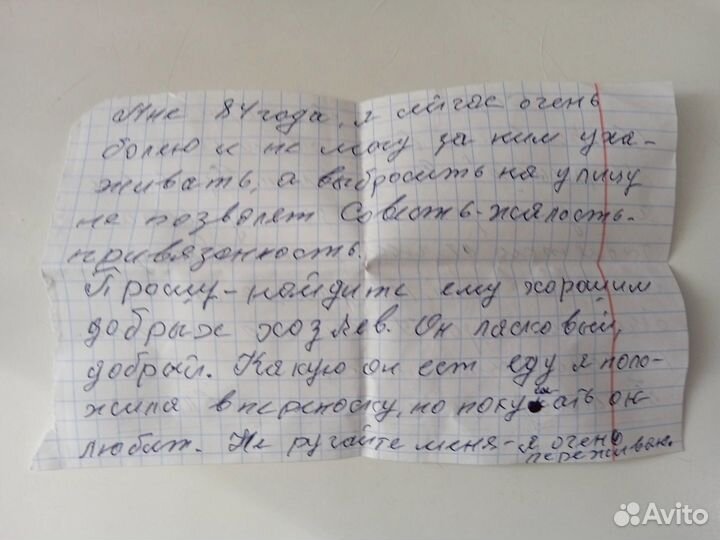 Мне 84 года, я сейчас очень
болею и не могу за ним уха-
живать, а выбросить на улицу
не позволят Совесть-жалость-
привязонность.
Прошу-найдите ему хорошим
добрых хозяев. Он ласковый,
добрый. Какую он ест еду я поло-
жила в переноску, но покушать он
любит. Не ругайте меня-я очень
переживаю.
Avito